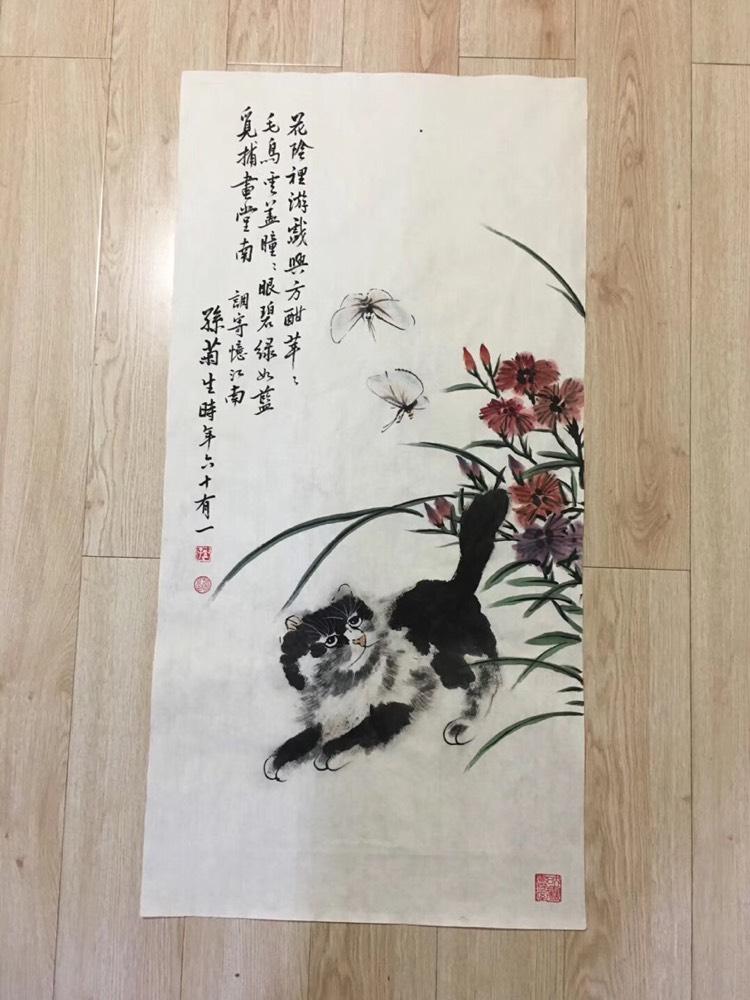 花陰裡游戲與方酣苹〻
毛烏雲蓋瞳〻眼碧绿如藍
覓捕畫堂南
調寄憶江南
孫菊生時年六十有一